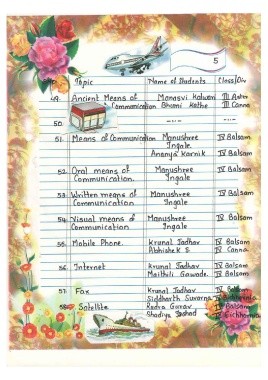 5
Topic Name of Students Class/Div
49. Ancient Means of Manasvi Kalwan III Aster
Communication Bhumi Kathe III Canna
50. ----
51. Means of Communication Manushree IV Balsam
Ingale.
Ananya Karnik IV Balsam
52. Oral means of Manushree IV Balsam
Communication. Ingale
53. Written means of Manushree IV Balsam
Communication Ingale
54. Visual means of Manushree IV Balsam
Communication Ingale
55. Mobile Phone. Krunal Jadhav IV Balsam
Abhishek S. IV Canna
56. Internet Krunal Jadhav IV Balsam
Maithili Gawade. IV Balsam
57. Fax Krunal Jadhav IV Balsam
Siddharth Suvarna IV Eichhornia
58. Satellite Rudra Gurav IV Balsam
IV Eichhornia